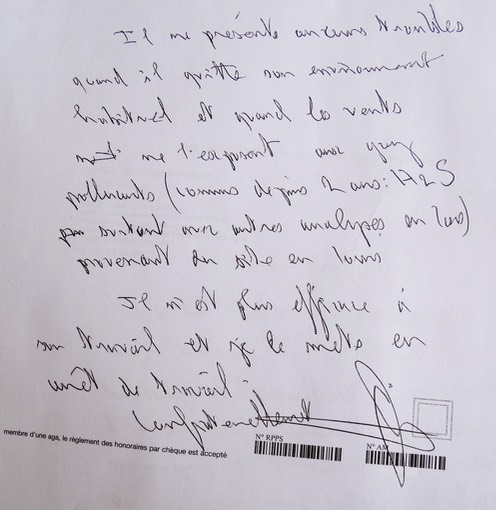 Il ne présente aucuns troubles
quand il quitte son environnement
habituel et quand les vents
ne l'exposent aux gaz
polluants (connus depuis 2 ans : H2S
autres analyses en cours)
provenant du site en cours
Il n'est plus efficace à
son travail et je le mets en
arrêt de travail.
Confraternellement
membre d'une aga, le règlement des honoraires par chèque est accepté
N° RPPS
N° AM